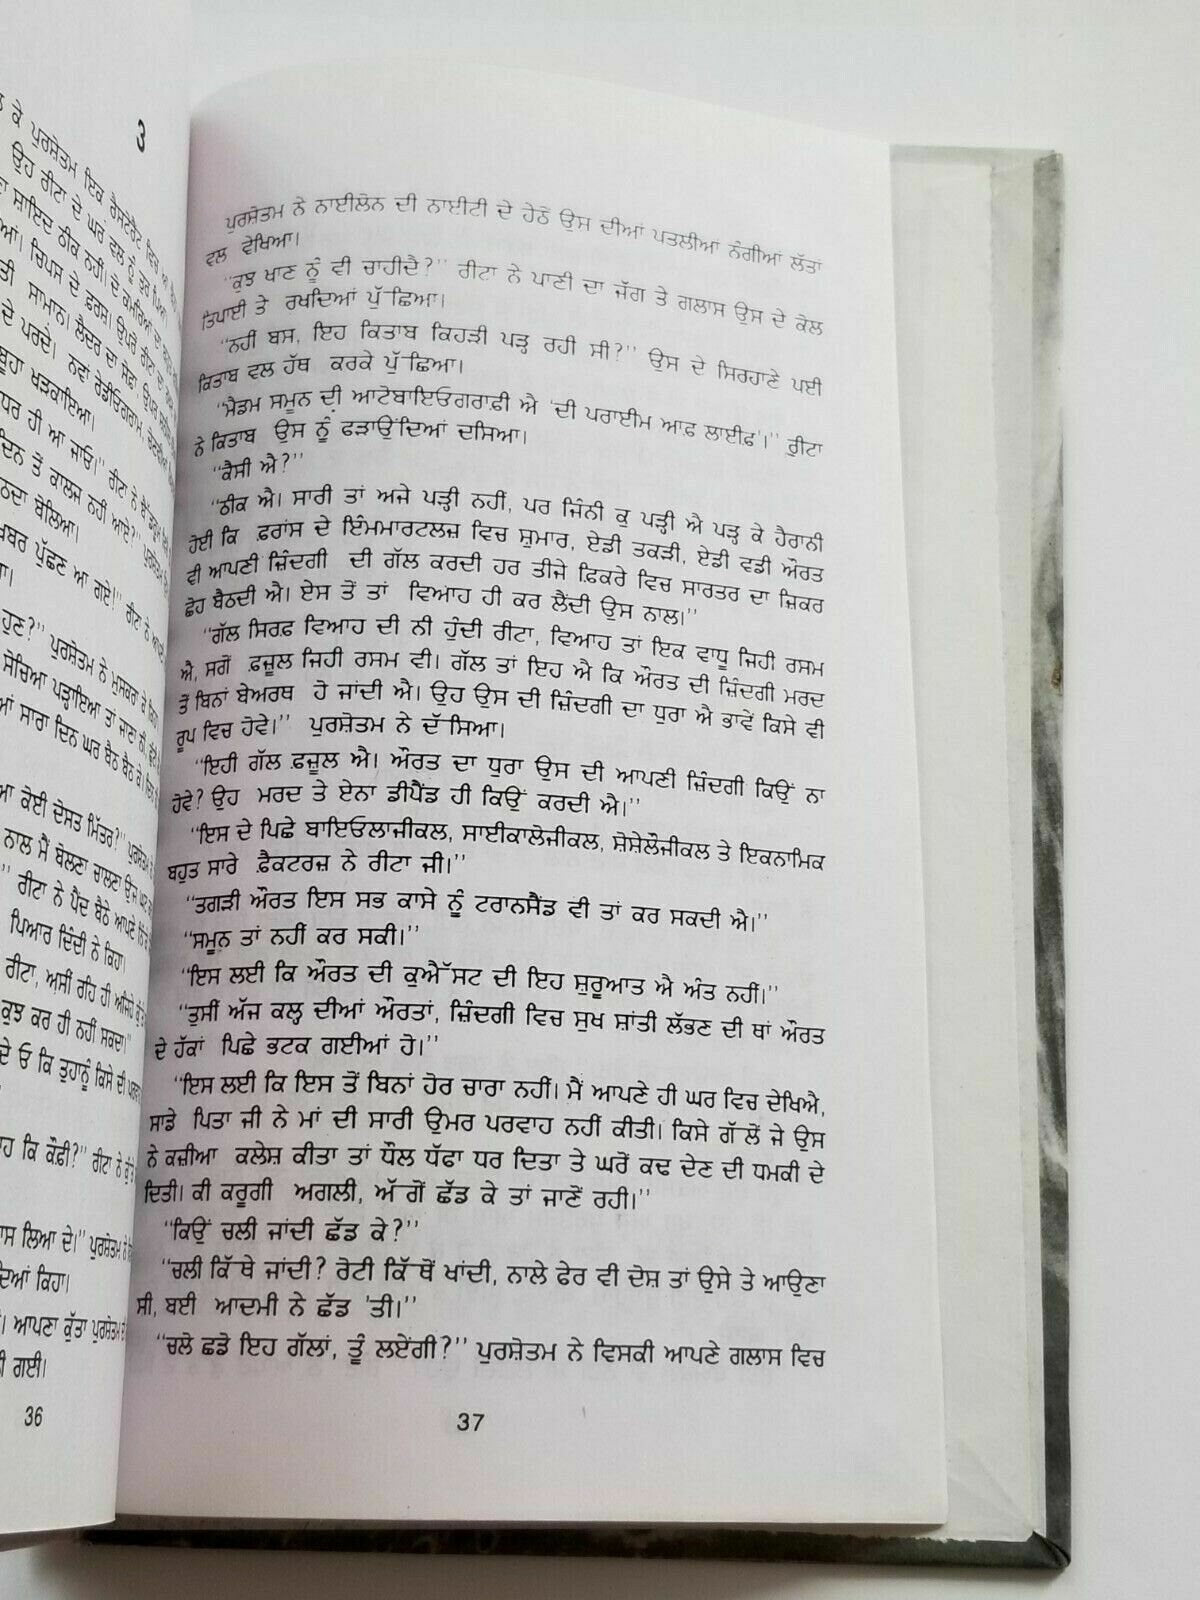 3
ਕੇ ਪੁਰਸ਼ੋਤਮ ਇਕ ਰੈਸਟੋਰੈਂਟ ਵਿਚ
ਉਹ ਰੀਟਾ ਦੇ ਘਰ ਵਲ ਨੂੰ ਤੁਰ ਪਿਆ
ਸ਼ਾਇਦ ਠੀਕ ਨਹੀਂ। ਦੋ ਕਮਰਿਆਂ ਦਾ
ਚਿਪਸ ਦੇ ਫ਼ਰਸ਼। ਉਪਰੋਂ ਰੀਟਾ ਦਾ
ਸਾਮਾਨ। ਲੈਦਰ ਦਾ ਸੋਫ਼ਾ, ਉਪਰ
ਦੇ ਪਰਦੇ। ਨਵਾਂ ਰੇਡੀਓਗਰਾਮ,
ਬੂਹਾ ਖੜਕਾਇਆ।
ਹੀ ਆ ਜਾਓ।" ਰੀਟਾ ਨੇ
ਦਿਨ ਤੋਂ ਕਾਲਜ ਨਹੀਂ ਆਏ?"
ਬੋਲਿਆ।
ਪੁੱਛਣ ਆ ਗਏ!" ਰੀਟਾ ਨੇ
ਹੁਣ?" ਪੁਰਸ਼ੋਤਮ ਨੇ ਮੁਸਕਰਾ ਕੇ
ਸੋਚਿਆ ਪੜ੍ਹਾਇਆ ਤਾਂ ਜਾਣਾ ਨੀ,
ਸਾਰਾ ਦਿਨ ਘਰ ਬੈਠ ਬੈਠ ਕੇ।
ਕੋਈ ਦੋਸਤ ਮਿੱਤਰ?"
ਨਾਲ ਮੈਂ ਬੋਲਣਾ ਚਾਲਣਾ ਉਂਜ
ਰੀਟਾ ਨੇ ਪੈਂਦ ਬੈਠੇ ਆਪਣੇ
ਪਿਆਰ ਦਿੰਦੀ ਨੇ ਕਿਹਾ।
ਰੀਟਾ, ਅਸੀਂ ਰਹਿ ਹੀ ਅਜਿਹੇ
ਕੁਝ ਕਰ ਹੀ ਨਹੀਂ ਸਕਦਾ।"
ਓ ਕਿ ਤੁਹਾਨੂੰ ਕਿਸੇ ਦੀ
ਕਿ ਕੌਫ਼ੀ?" ਰੀਟਾ ਨੇ
ਲਿਆ ਦੇ।" ਪੁਰਸ਼ੋਤਮ ਨੇ
ਕਿਹਾ।
ਆਪਣਾ ਕੁੱਤਾ ਪੁਰਸ਼ੋਤਮ
ਗਈ।
36
ਪੁਰਸ਼ੋਤਮ ਨੇ ਨਾਈਲੋਨ ਦੀ ਨਾਈਟੀ ਦੇ ਹੇਠੋਂ ਉਸ ਦੀਆਂ ਪਤਲੀਆਂ ਨੰਗੀਆਂ ਲੱਤਾਂ
ਵਲ ਵੇਖਿਆ।
"ਕੁਝ ਖਾਣ ਨੂੰ ਵੀ ਚਾਹੀਦੈ?" ਰੀਟਾ ਨੇ ਪਾਣੀ ਦਾ ਜੱਗ ਤੇ ਗਲਾਸ ਉਸ ਦੇ ਕੋਲ
ਤਿਪਾਈ ਤੇ ਰਖਦਿਆਂ ਪੁੱਛਿਆ।
"ਨਹੀਂ ਬਸ, ਇਹ ਕਿਤਾਬ ਕਿਹੜੀ ਪੜ੍ਹ ਰਹੀ ਸੀ?" ਉਸ ਦੇ ਸਿਰਹਾਣੇ ਪਈ
ਕਿਤਾਬ ਵਲ ਹੱਥ ਕਰਕੇ ਪੁੱਛਿਆ।
"ਮੈਡਮ ਸਮੂਨ ਦੀ ਆਟੋਬਾਇਓਗਰਾਫ਼ੀ ਐ 'ਦੀ ਪਰਾਈਮ ਆਫ਼ ਲਾਈਫ਼'।" ਰੀਟਾ
ਨੇ ਕਿਤਾਬ ਉਸ ਨੂੰ ਫੜਾਉਂਦਿਆਂ ਦਸਿਆ।
"ਕੈਸੀ ਐ?"
"ਠੀਕ ਐ। ਸਾਰੀ ਤਾਂ ਅਜੇ ਪੜ੍ਹੀ ਨਹੀਂ, ਪਰ ਜਿੰਨੀ ਕੁ ਪੜ੍ਹੀ ਐ ਪੜ੍ਹ ਕੇ ਹੈਰਾਨੀ
ਹੋਈ ਕਿ ਫ਼ਰਾਂਸ ਦੇ ਇੰਮਮਾਰਟਲਜ਼ ਵਿਚ ਸ਼ੁਮਾਰ, ਏਡੀ ਤਕੜੀ, ਏਡੀ ਵਡੀ ਔਰਤ
ਵੀ ਆਪਣੀ ਜ਼ਿੰਦਗੀ ਦੀ ਗੱਲ ਕਰਦੀ ਹਰ ਤੀਜੇ ਫ਼ਿਕਰੇ ਵਿਚ ਸਾਰਤਰ ਦਾ ਜ਼ਿਕਰ
ਛੇਹ ਬੈਠਦੀ ਐ। ਏਸ ਤੋਂ ਤਾਂ ਵਿਆਹ ਹੀ ਕਰ ਲੈਂਦੀ ਉਸ ਨਾਲ।"
"ਗੱਲ ਸਿਰਫ਼ ਵਿਆਹ ਦੀ ਨੀ ਹੁੰਦੀ ਰੀਟਾ, ਵਿਆਹ ਤਾਂ ਇਕ ਵਾਧੂ ਜਿਹੀ ਰਸਮ
ਐ, ਸਗੋਂ ਫ਼ਜ਼ੂਲ ਜਿਹੀ ਰਸਮ ਵੀ। ਗੱਲ ਤਾਂ ਇਹ ਐ ਕਿ ਔਰਤ ਦੀ ਜ਼ਿੰਦਗੀ ਮਰਦ
ਤੋਂ ਬਿਨਾਂ ਬੇਅਰਥ ਹੋ ਜਾਂਦੀ ਐ। ਉਹ ਉਸ ਦੀ ਜ਼ਿੰਦਗੀ ਦਾ ਧੁਰਾ ਐ ਭਾਵੇਂ ਕਿਸੇ ਵੀ
ਰੂਪ ਵਿਚ ਹੋਵੇ।" ਪੁਰਸ਼ੋਤਮ ਨੇ ਦੱਸਿਆ।
"ਇਹੀ ਗੱਲ ਫ਼ਜ਼ੂਲ ਐ। ਔਰਤ ਦਾ ਧੁਰਾ ਉਸ ਦੀ ਆਪਣੀ ਜ਼ਿੰਦਗੀ ਕਿਉਂ ਨਾ
ਹੋਵੇ? ਉਹ ਮਰਦ ਤੇ ਏਨਾ ਡੀਪੈਂਡ ਹੀ ਕਿਉਂ ਕਰਦੀ ਐ।"
"ਇਸ ਦੇ ਪਿਛੇ ਬਾਇਓਲਾਜੀਕਲ, ਸਾਈਕਾਲੋਜੀਕਲ, ਸ਼ੋਸ਼ੇਲੌਜੀਕਲ ਤੇ ਇਕਨਾਮਿਕ
ਬਹੁਤ ਸਾਰੇ ਫ਼ੈਕਟਰਜ਼ ਨੇ ਰੀਟਾ ਜੀ।"
"ਤਗੜੀ ਔਰਤ ਇਸ ਸਭ ਕਾਸੇ ਨੂੰ ਟਰਾਨਸੈਂਡ ਵੀ ਤਾਂ ਕਰ ਸਕਦੀ ਐ।"
"ਸਮੂਨ ਤਾਂ ਨਹੀਂ ਕਰ ਸਕੀ।"
"ਇਸ ਲਈ ਕਿ ਔਰਤ ਦੀ ਕੁਐੱਸਟ ਦੀ ਇਹ ਸ਼ੁਰੂਆਤ ਐ ਅੰਤ ਨਹੀਂ।"
"ਤੁਸੀਂ ਅੱਜ ਕਲ੍ਹ ਦੀਆਂ ਔਰਤਾਂ, ਜ਼ਿੰਦਗੀ ਵਿਚ ਸੁਖ ਸ਼ਾਂਤੀ ਲੱਭਣ ਦੀ ਥਾਂ ਔਰਤ
ਦੇ ਹੱਕਾਂ ਪਿਛੇ ਭਟਕ ਗਈਆਂ ਹੋ।"
"ਇਸ ਲਈ ਕਿ ਇਸ ਤੋਂ ਬਿਨਾਂ ਹੋਰ ਚਾਰਾ ਨਹੀਂ। ਮੈਂ ਆਪਣੇ ਹੀ ਘਰ ਵਿਚ ਦੇਖਿਐ,
ਸਾਡੇ ਪਿਤਾ ਜੀ ਨੇ ਮਾਂ ਦੀ ਸਾਰੀ ਉਮਰ ਪਰਵਾਹ ਨਹੀਂ ਕੀਤੀ। ਕਿਸੇ ਗੱਲੋਂ ਜੇ ਉਸ
ਨੇ ਕਜ਼ੀਆ ਕਲੇਸ਼ ਕੀਤਾ ਤਾਂ ਧੌਲ ਧੱਫਾ ਧਰ ਦਿਤਾ ਤੇ ਘਰੋਂ ਕਢ ਦੇਣ ਦੀ ਧਮਕੀ ਦੇ
ਦਿਤੀ। ਕੀ ਕਰੂਗੀ ਅਗਲੀ, ਅੱਗੋਂ ਛੱਡ ਕੇ ਤਾਂ ਜਾਣੋਂ ਰਹੀ।"
"ਕਿਉਂ ਚਲੀ ਜਾਂਦੀ ਛੱਡ ਕੇ?"
"ਚਲੀ ਕਿੱਥੇ ਜਾਂਦੀ? ਰੋਟੀ ਕਿੱਥੋਂ ਖਾਂਦੀ, ਨਾਲੇ ਫੇਰ ਵੀ ਦੋਸ਼ ਤਾਂ ਉਸੇ ਤੇ ਆਉਣਾ
ਸੀ, ਬਈ ਆਦਮੀ ਨੇ ਛੱਡ 'ਤੀ।"
"ਚਲੋ ਛਡੋ ਇਹ ਗੱਲਾਂ, ਤੂੰ ਲਏਂਗੀ?" ਪੁਰਸ਼ੋਤਮ ਨੇ ਵਿਸਕੀ ਆਪਣੇ ਗਲਾਸ ਵਿਚ
37